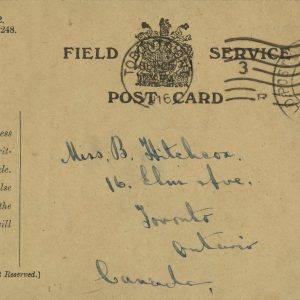 2.
248.
FIELD SERVICE
3
POST CARD
R
16
ess
rit-
de.
lse
the
ill
t Reserved.]
Mrs. B. Hitchcox.
16. Elm Ave.
Toronto
Ontario
Canada,